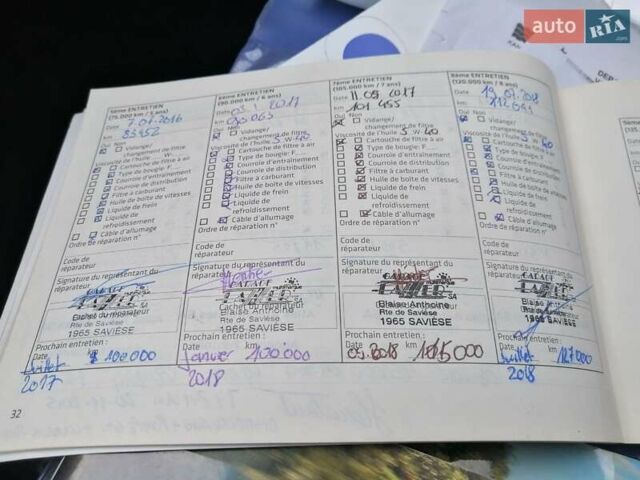 auto RIA.com
5ème ENTRETIEN
(75.000 km / 5 ans)
7.01.2016
83452
Oui Non
Vidange/
changement de filtre
Viscosité de l'huile W
Cartouche de filtre à air
Type de bougie: F
Courroie d'entraînement
Courroie de distribution
Filtre à carburant
Huile de boîte de vitesses
Liquide de frein
Liquide de
refroidissement
Câble d'allumage
Ordre de réparation n°
Code de
réparateur
Signature du représentant du
réparateur
GARAGE
1965 SAVIÈSE
Prochain entretien :
Date km 100000
Juillet
2017
6ème ENTRETIEN
(90.000 km / 6 ans)
Date 2017
km
Oui Non
Vidange/
changement de filtre
Viscosité de l'huile 5 W 40
Cartouche de filtre à air
Type de bougie: F
Courroie d'entraînement
Courroie de distribution
Filtre à carburant
Huile de boîte de vitesses
Liquide de frein
Liquide de
refroidissement
Câble d'allumage
Ordre de réparation n°
Code de
réparateur
Signature du représentant du
réparateur
GARAGE
Blaise Anthoine
Rte de Savièse
1965 SAVIÈSE
Prochain entretien :
Date km
Janvier 100'000
2018
7ème ENTRETIEN
(105.000 km / 7 ans)
Date 11.09.2017
km 101 455
Oui Non
Vidange/
changement de filtre
Viscosité de l'huile 5 W 40
Cartouche de filtre à air
Type de bougie: F
Courroie d'entraînement
Courroie de distribution
Filtre à carburant
Huile de boîte de vitesses
Liquide de frein
Liquide de
refroidissement
Câble d'allumage
Ordre de réparation n°
Code de
réparateur
Signature du représentant du
réparateur
GARAGE
Blaise Anthoine
Rte de Savièse
1965 SAVIÈSE
Prochain entretien :
Date km
09.2018
8ème ENTRETIEN
(120.000 km / 8 ans)
Date 19.07.2018
km 112
Oui Non
Vidange/
changement de filtre
Viscosité de l'huile 5 W 40
Cartouche de filtre à air
Type de bougie: F
Courroie d'entraînement
Courroie de distribution
Filtre à carburant
Huile de boîte de vitesses
Liquide de frein
Liquide de
refroidissement
Câble d'allumage
Ordre de réparation n°
Code de
réparateur
Signature du représentant du
réparateur
GARAGE
Rte de Savièse
1965 SAVIÈSE
Prochain entretien :
Date km 127000
Juillet
2018
32